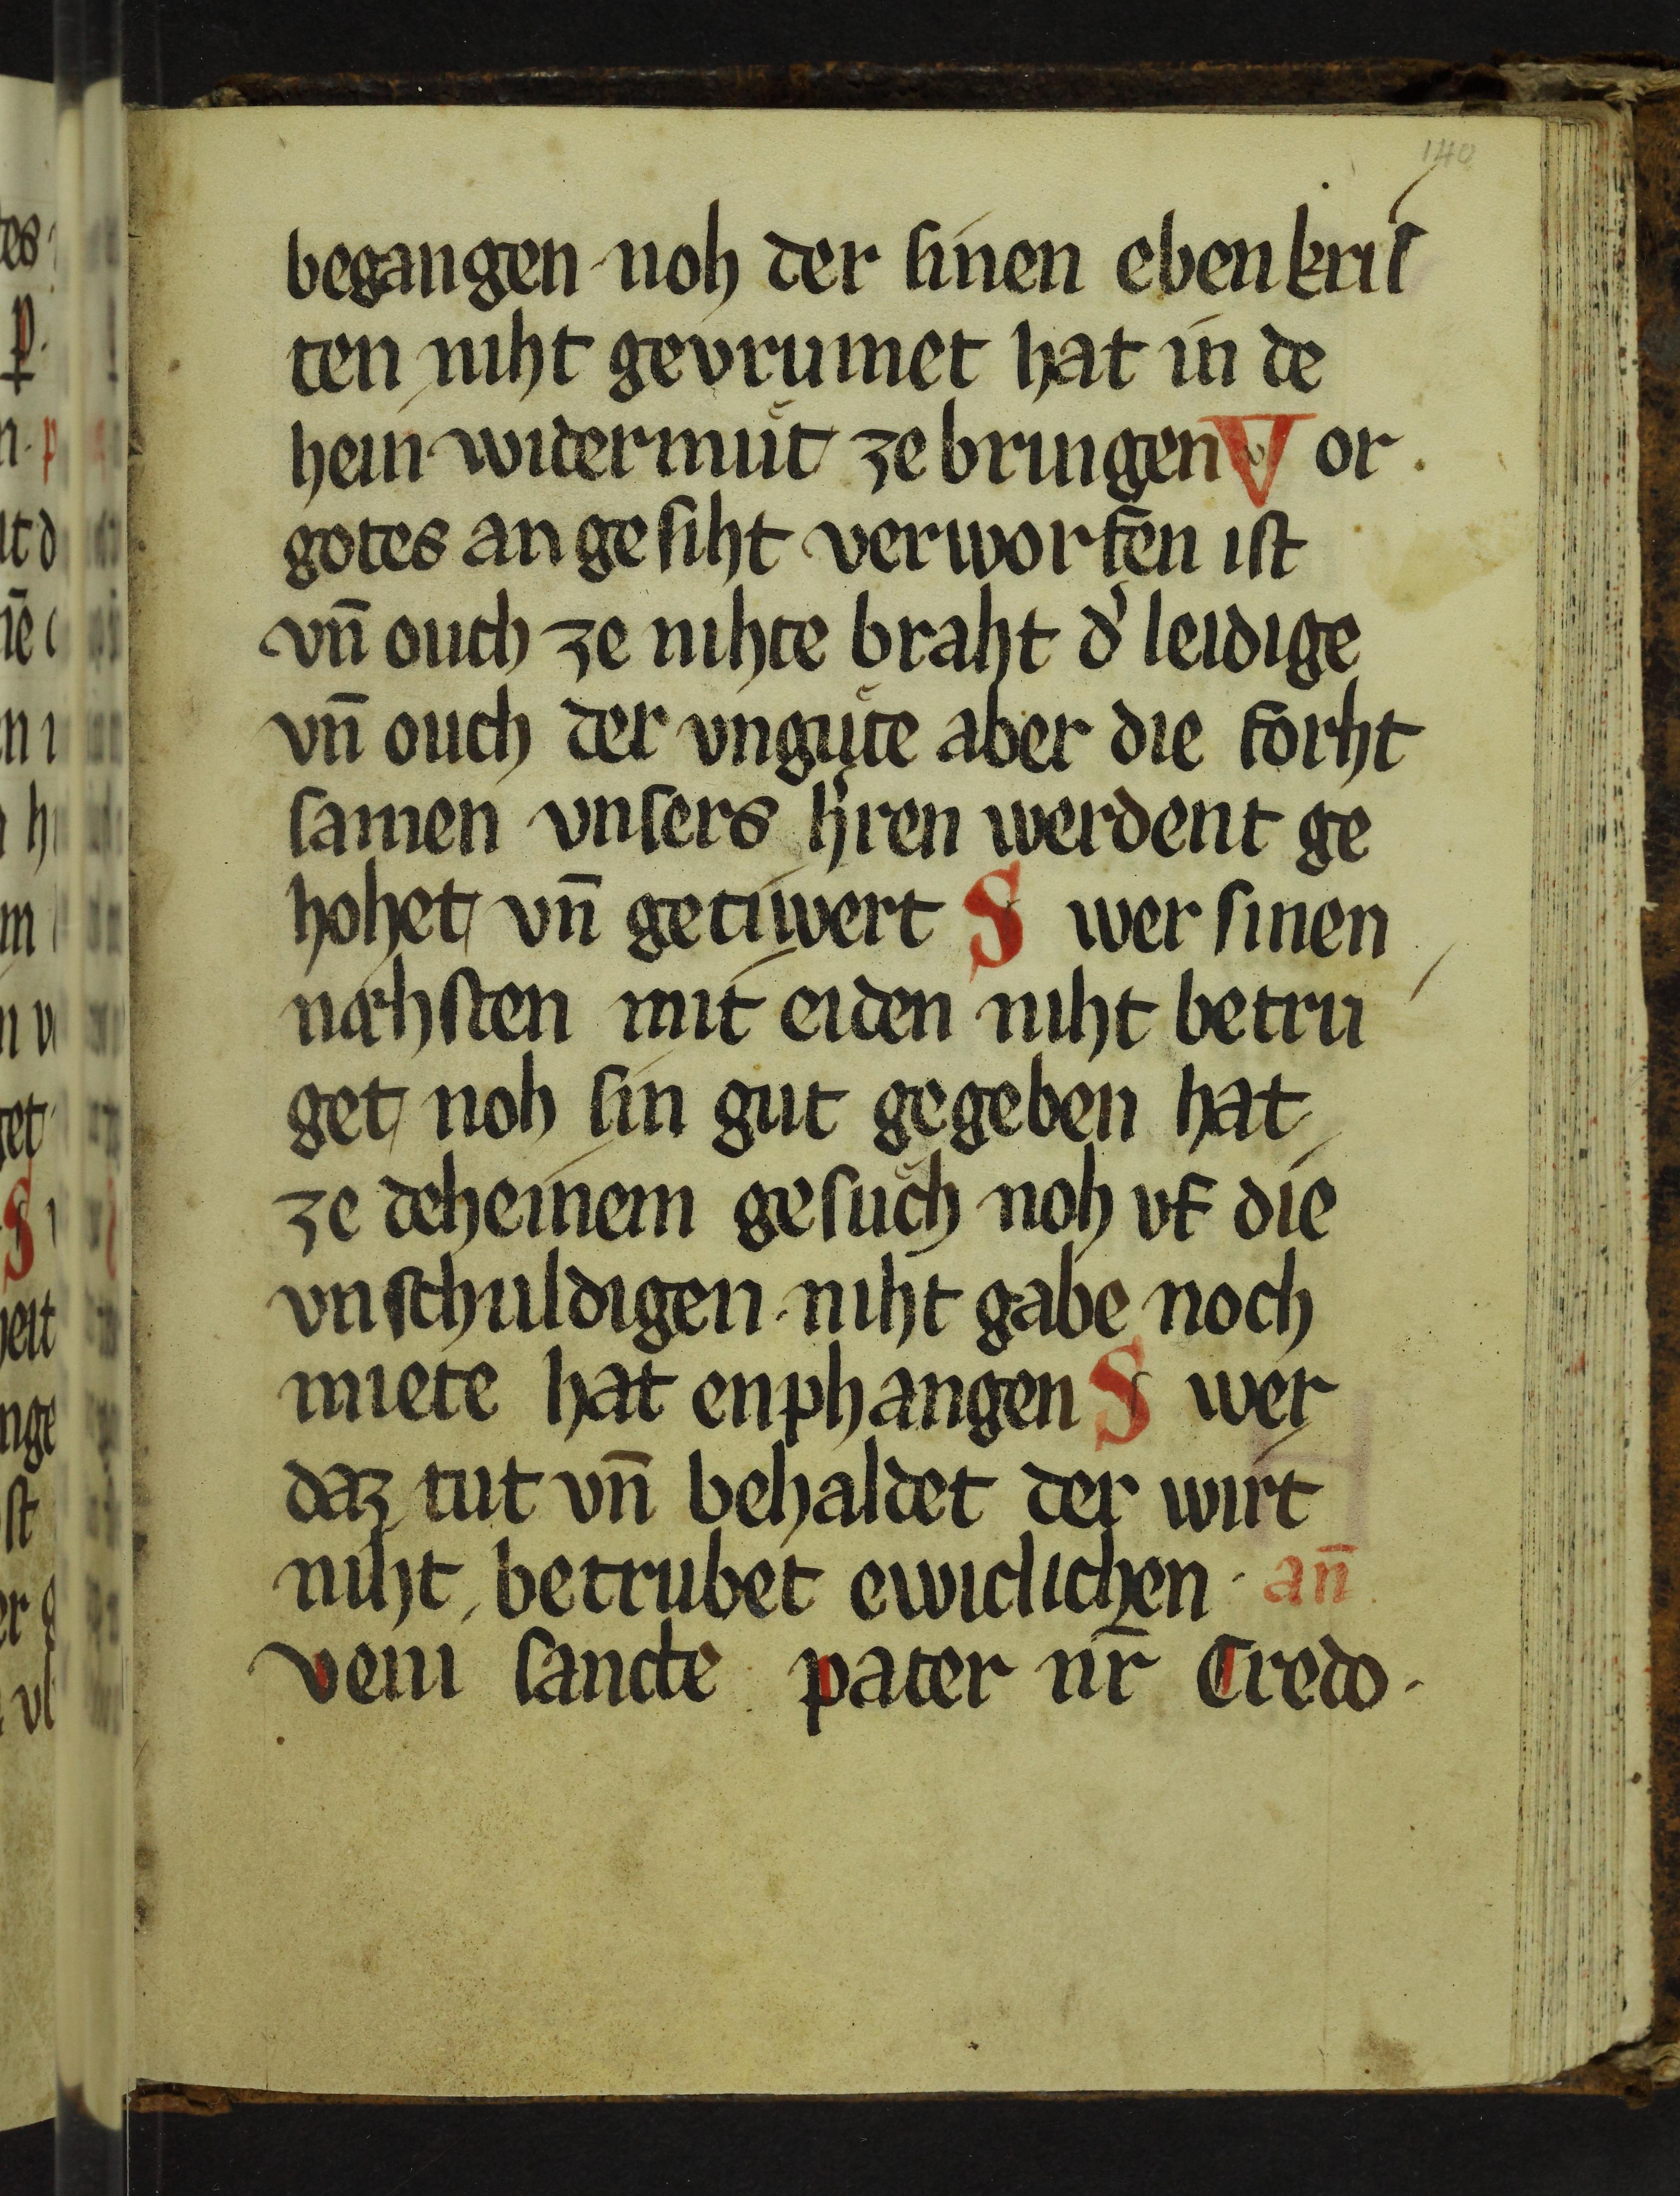 140
begangen noh der sinen ebenkris
ten niht gevrumet hat in de
hein widermuͦt ze bringen Vor
gotes angesiht verworfen ist
vn̄ ouch ze nihte braht d' leidige
vn̄ ouch der vnguͦte aber die forht
samen vnsers h'ren werdent ge
hohet vn̄ getiwert Swer sinen
næhsten mit eiden niht betru
get noh sin gut gegeben hat
ze deheinem gesuͦch noh vf die
vnschuldigen niht gabe noch
miete hat enphangen Swer
daz tut vn̄ behaldet der wirt
niht betrubet ewiclichen · an̄
veni sancte pater nr̄ Credo ·